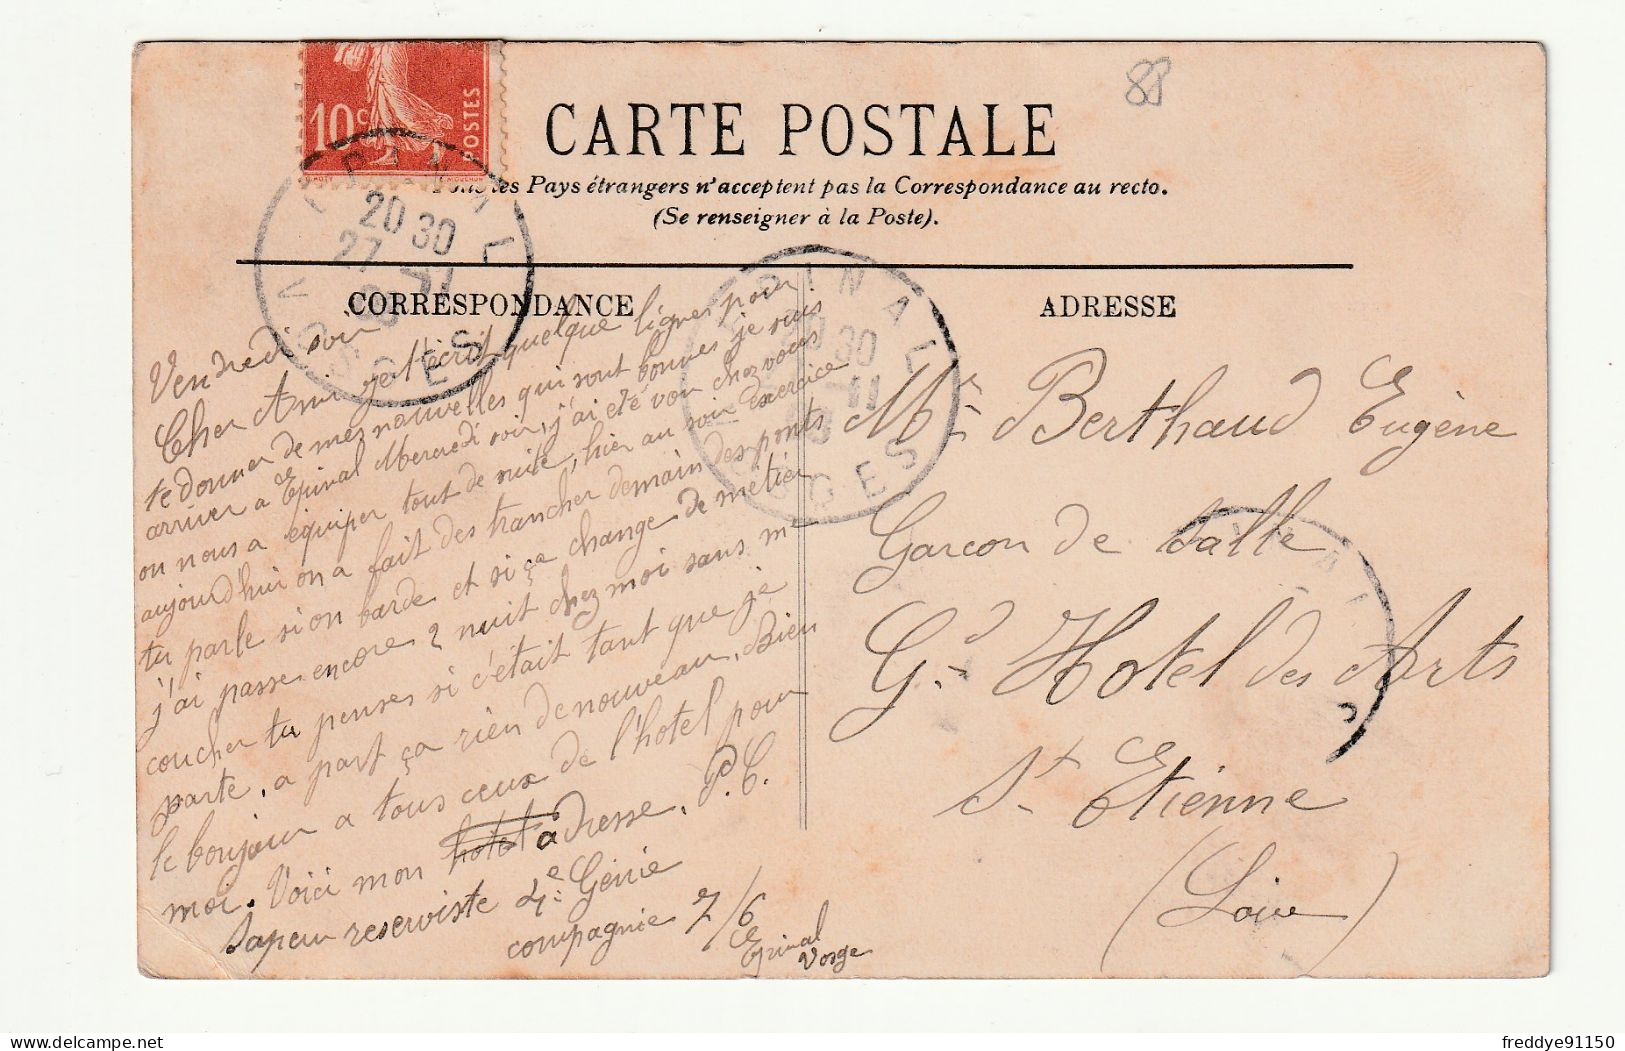 88
10c
POSTES
CARTE POSTALE
Tous les Pays étrangers n'acceptent pas la Correspondance au recto.
(Se renseigner à la Poste).
EPINAL
20 30
27 -11
09
VOSGES
EPINAL
20 30
-11
09
VOSGES
CORRESPONDANCE
Vendredi soir
Cher Ami je t'écrit quelque lignes pour
te donner de mes nouvelles qui sont bonnes je suis
arriver a Epinal Mercredi soir, j'ai eté voir chez vous
on nous a équiper tout de suite, hier au soir exercice
aujourd'hui on a fait des trancher demain des ponts
tu parle si on barde et si ça change de métier
j'ai passer encore 2 nuit chez moi sans m
coucher tu penses si c'était tant que je
parte, a part ça rien de nouveau, Bien
le bonjour a tous ceux de l'hotel pour
moi. Voici mon adresse, P.C.
Sapeur reserviste 4e Génie
compagnie 7/6
Epinal
Vosge
ADRESSE
Mr Berthaud Eugène
Garcon de salle
Gd Hotel des Arts
St Etienne
(Loire)
freddye91150